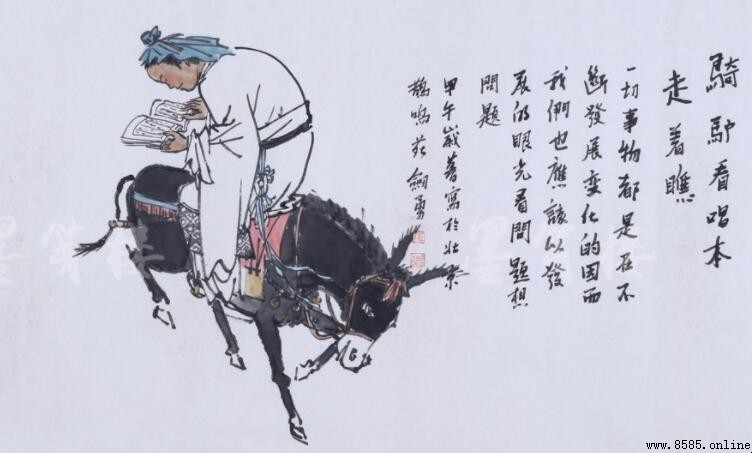 騎驴看唱本
走着瞧
一切事物都是在不
断發展变化的因而
我們也應該以發
展的眼光看問題想
問題
甲午歲暮寫於北京
鳴苑劍勇
www.8585.online